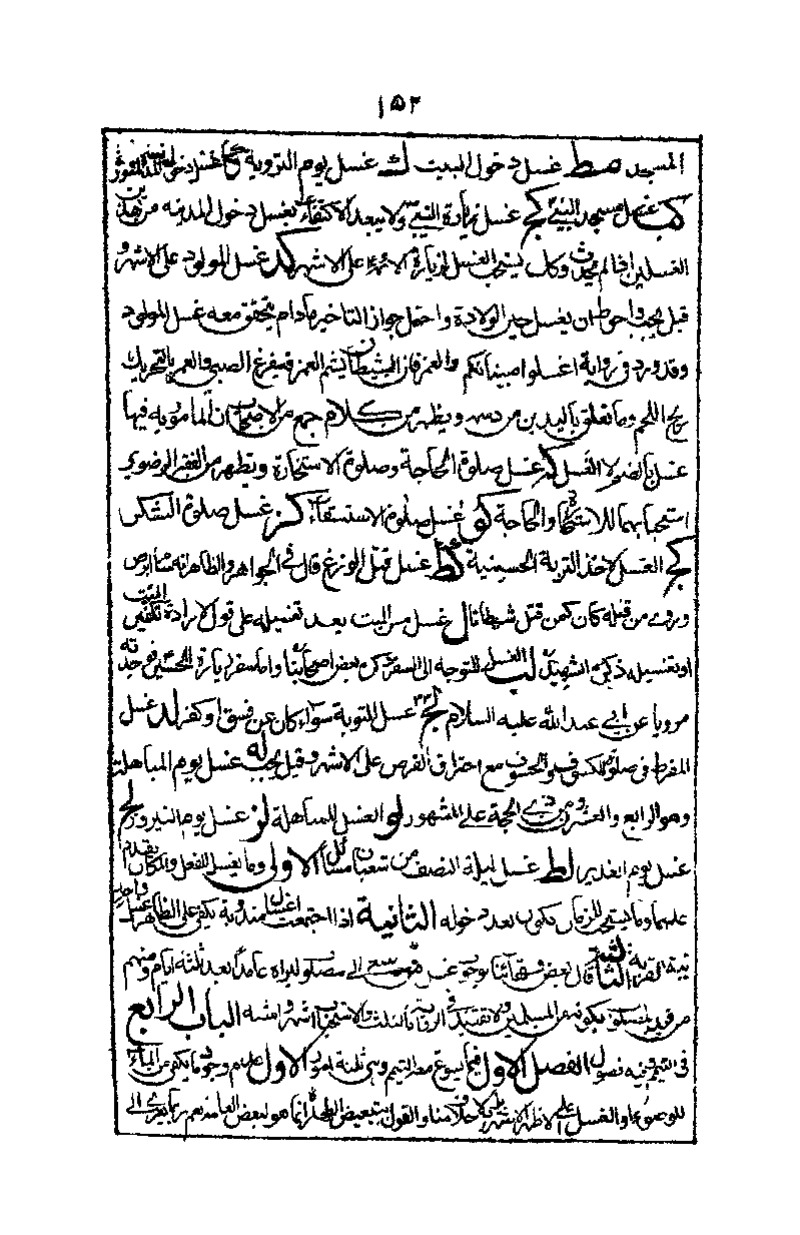 ١٥٢
المسجد يط غسل دخول البيت ك غسل يوم التروية كا غسل دخول
كب غسل مسجد النبي كج غسل زيارة النبي ولا يبعد الاكتفاء بغسل دخول المدينه من هذين
الغسلين اذا لم يحدث وكك يستحب الغسل لزيارة الائمة على الاشهر كد غسل المولود على الاشهر و
قيل يجب واحوط ان يغسل حين الولادة واحتمل جواز التاخير مادام يتحقق معه غسل المولود
وقد ورد في رواية اغسلوا صبيانكم من الغمر فان الشيطان يشم الغمر فيفزع الصبي والغمر بالتحريك
ريح اللحم وما تعلق باليدين من دسمه ويظهر من كلام جمع من الاصحاب ان المامور به فيها
غسل بالضم لا الغسل كه غسل صلوة الحاجة وصلوة الاستخارة ويظهر من الفقه الرضوي
استحبابهما للاستخارة والحاجة كو غسل صلوة الاستسقاء كز غسل صلوة الشكر
كح الغسل لاخذ التربة الحسينية كط غسل قتل الوزغ قال في الجواهر والظاهر انه سام ابرص
وروي من قتله كان كمن قتل شيطانا ل غسل مس الميت بعد تغسيله على قول لا رادة تكفين الميت
او تغسيله ذكره الشهيد لب الغسل للتوجه الى السفر ذكره بعض اصحابنا واما سفر زيارة الحسين فوجدته
مرويا عن ابي عبد الله عليه السلام لج غسل التوبة سواء كان عن فسق او كفر لد غسل
المفرط في صلوة الكسوف والخسوف مع احتراق القرص على الاشهر وقيل يجب له غسل يوم المباهلة
وهو الرابع والعشرون من ذي الحجة على المشهور لو الغسل للمباهلة لز غسل يوم النيروز لح
غسل يوم الغدير لط غسل ليلة النصف من شعبان مسائل الاولى وما يغسل للفعل والمكان يقدم
عليهما وما يستحب للزمان يكون بعد دخوله الثانية اذا اجتمعت اغسال مندوبة يكفي على الظاهر غسل واحد
نية القربة الثالثة قال بعض فقهائنا بوجوب غسل من سعى الى مصلوب ليراه عامدا بعد ثلثة ايام ومنهم
من قيد المصلوب بكونه من المسلمين ولا تقييد في الرواية بالثلث والاستحباب اشهر واشبه الباب الرابع
في التيمم وفيه فصول الفصل الاول فيما يسوغ معه التيمم وهي ثلثة امور الاول عدم وجود ما يكفي من الماء
للوضوء او الغسل على الاظهر الاشهر بلا خلاف منا والقول بتبعيض الطهارة انما هو لبعض العامة نعم ربما يعزى الى